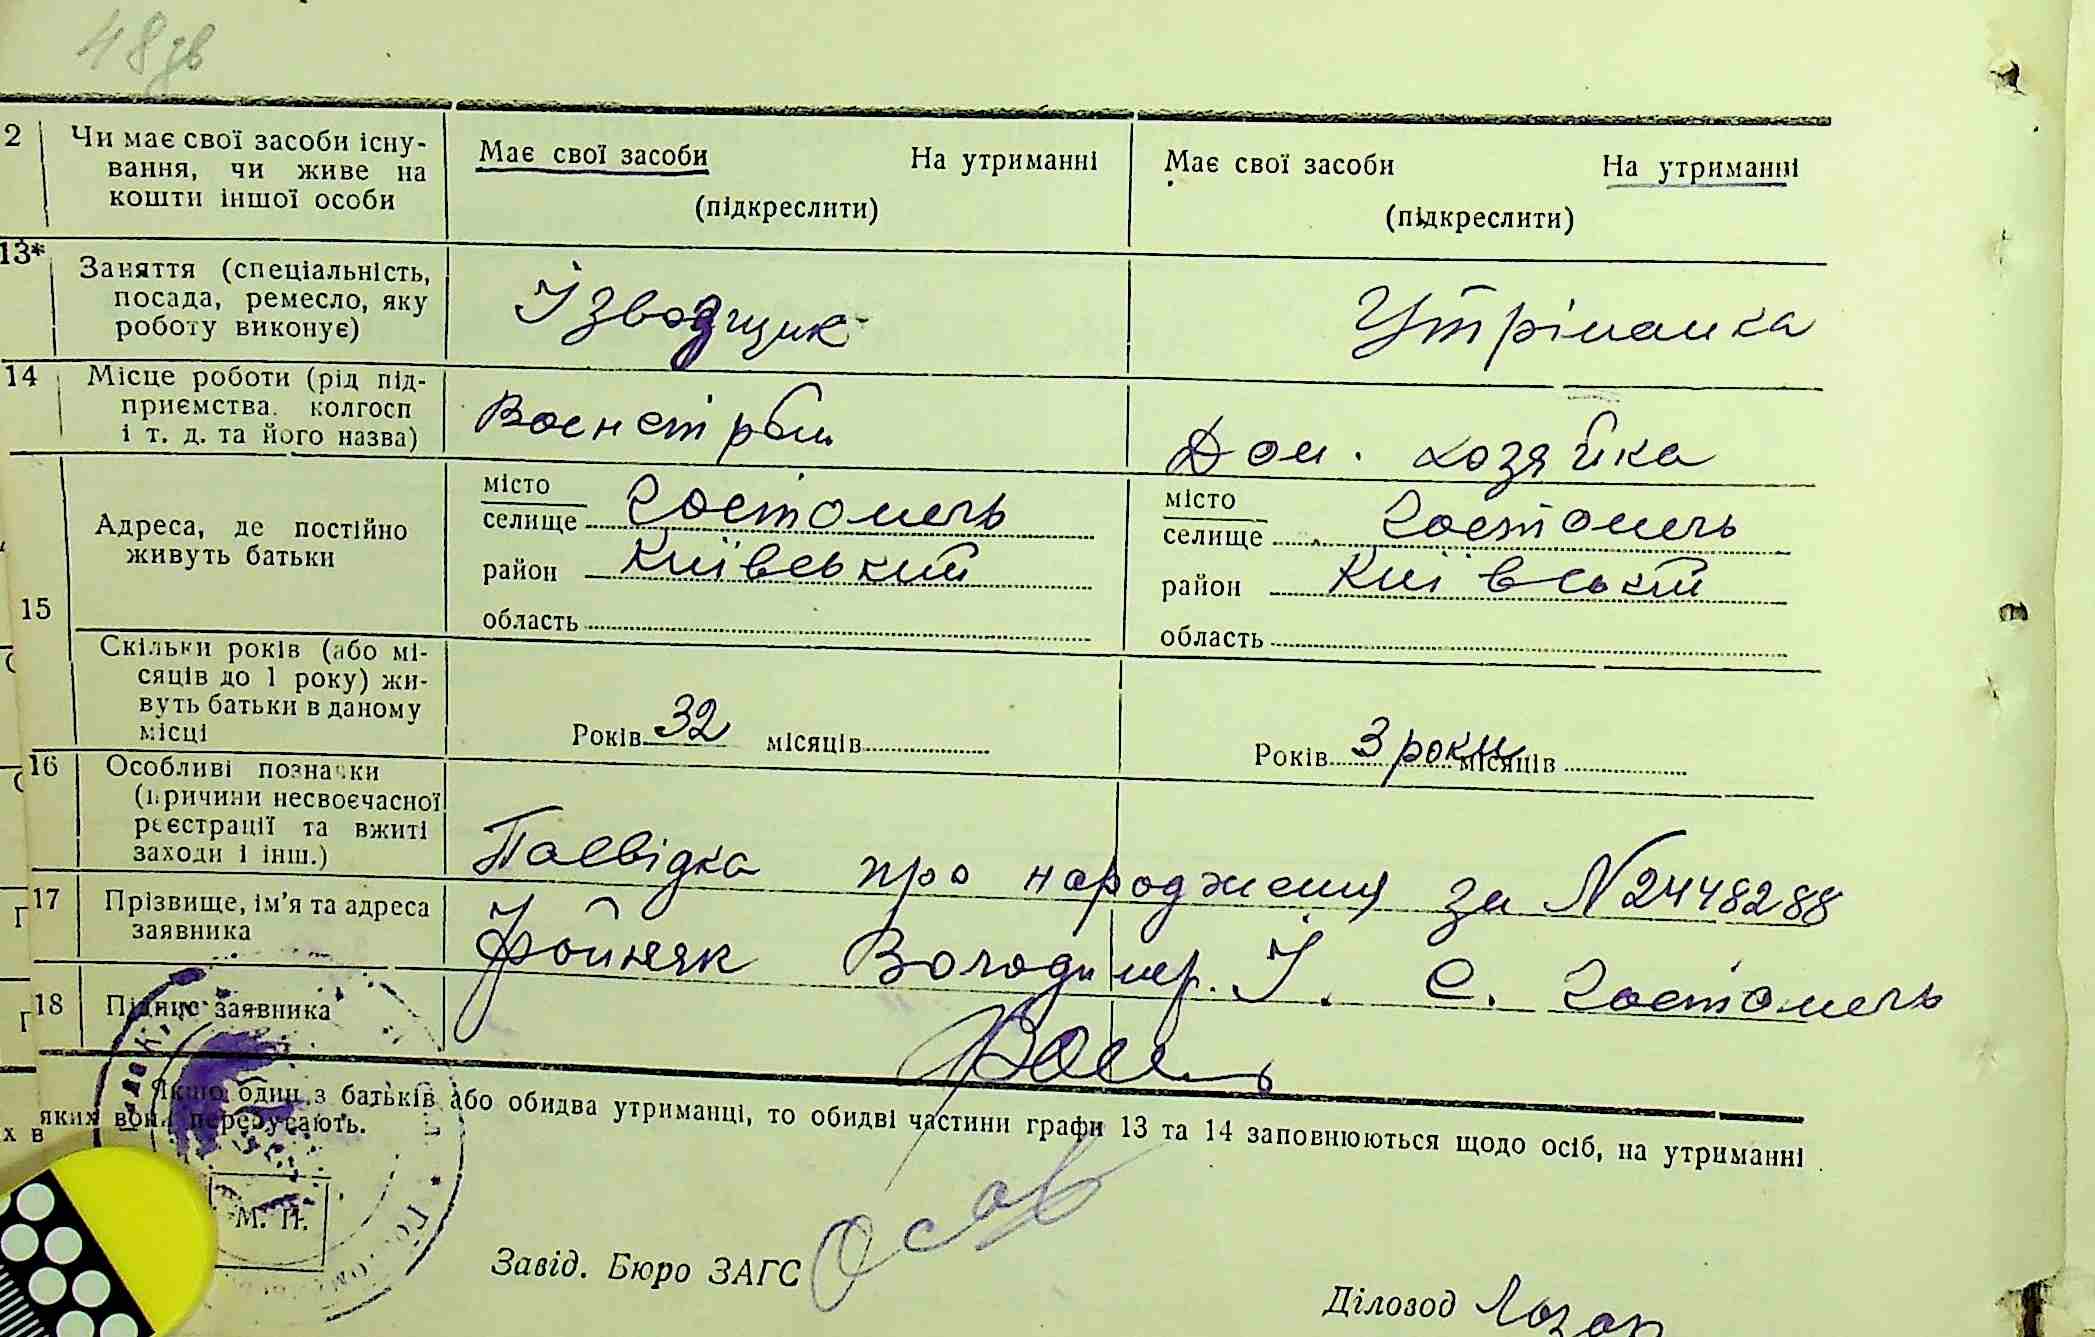 48зв
2 Чи має свої засоби існу-
вання, чи живе на
кошти іншої особи
Має свої засоби На утриманні
(підкреслити)
Має свої засоби На утриманні
(підкреслити)
13* Заняття (спеціальність,
посада, ремесло, яку
роботу виконує)
Ізвозщик
Утріманка
14 Місце роботи (рід під-
приємства, колгосп
і т. д. та його назва)
Дом. хозяйка
15 Адреса, де постійно
живуть батьки
місто
селище Гостомель
район Київський
область
місто
селище Гостомель
район Київський
область
Скільки років (або мі-
сяців до 1 року) жи-
вуть батьки в даному
місці
Років 32 місяців
Років 3 роки місяців
16 Особливі позначки
(причини несвоєчасної
реєстрації та вжиті
заходи і інш.)
Посвідка про народження за N 2448288
17 Прізвище, ім'я та адреса
заявника
Фойняк Володимир. І. С. Гостомель
18 Підпис заявника
Якщо один з батьків або обидва утриманці, то обидві частини графи 13 та 14 заповнюються щодо осіб, на утриманні
яких вони перебувають.
х в
М. П.
Завід. Бюро ЗАГС
Діловод